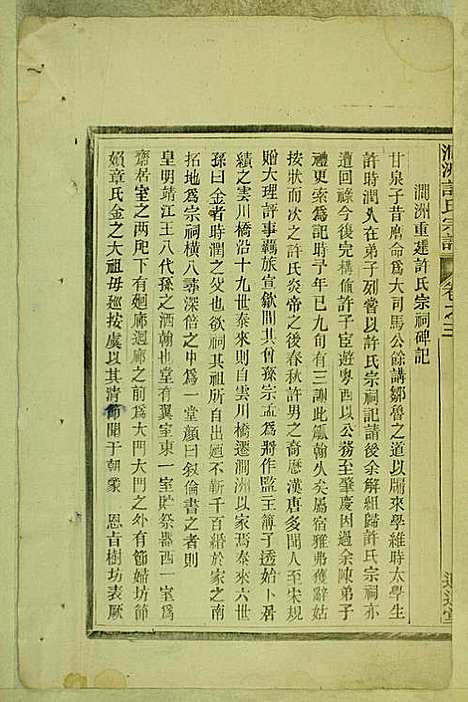 澗洲許氏宗譜 卷之三
澗洲重建許氏宗祠碑記
甘泉子昔膺命爲大司馬公餘講鄒魯之道以屬來學維時太學生
許時潤久在弟子列嘗以許氏宗祠記請後余解組歸許氏宗祠亦
遭回祿今復完構値許子宦遊粤西以公務至肇慶因過余陳弟子
禮更索爲記時予年已九旬有三謝此觚翰久矣屬宿雅弗獲辭姑
按狀而次之許氏炎帝之後春秋許男之裔歷漢唐多聞人至宋規
贈大理評事羈旅宣歙間其曾孫宗孟爲將作監主簿了透始卜居
績之雲川橋沿十九世泰來則自雲川橋遷澗洲以家焉泰來六世
孫曰金者時潤之父欲祠其祖所自出廼不靳千百緡於家之南
拓地爲宗祠橫八尋深倍之中爲一堂顏曰叙倫書之者則
皇明靖江王八代孫之洒翰也堂有翼室東一室貯祭器西一室爲
齋居室之兩陁下有廻廊迴廊之前爲大門大門之外有節婦坊節
婦章氏金之大祖母廵按虞以其清節聞于朝蒙 恩旨樹坊表厥